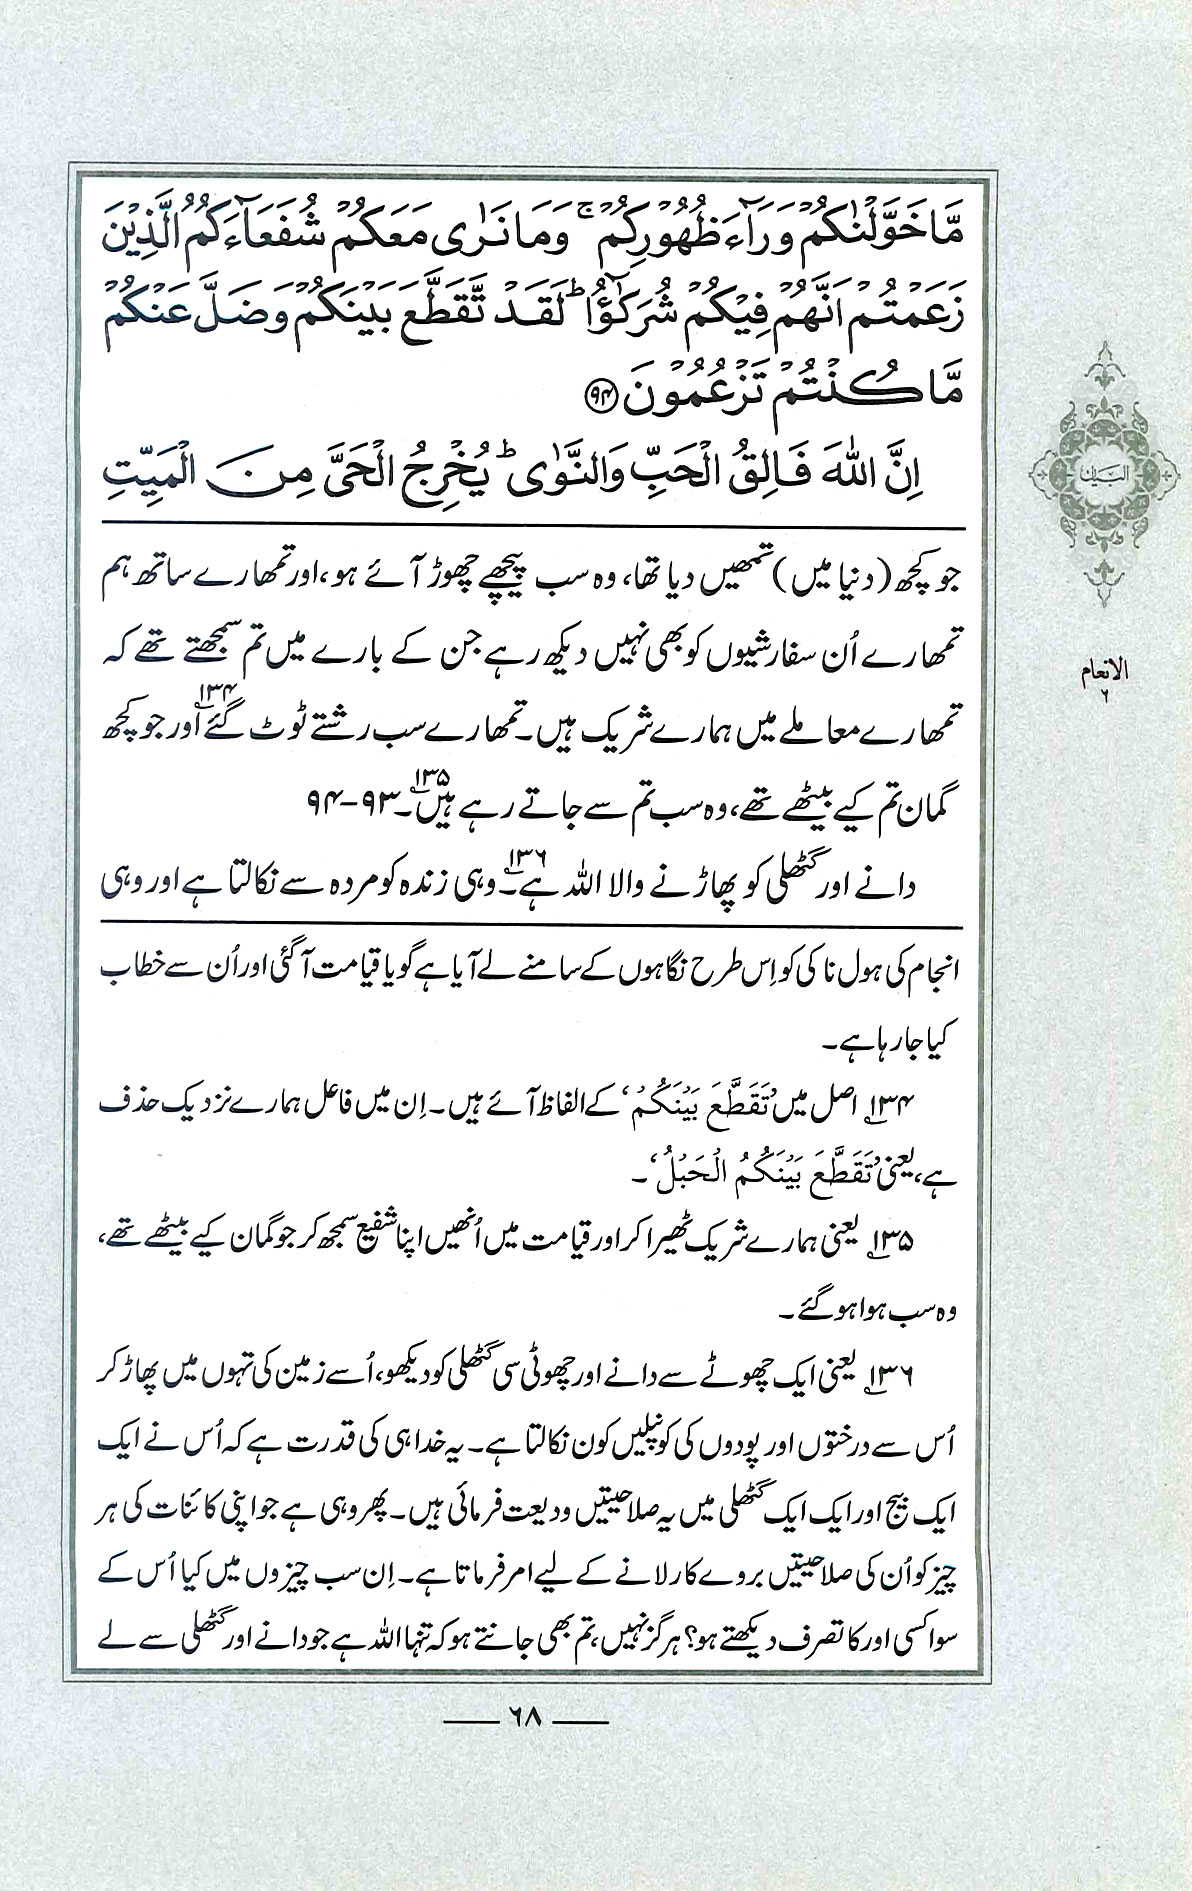 مَّا خَوَّلْنٰكُمْ وَرَآءَ ظُهُوْرِكُمْ ۚ وَمَا نَرٰى مَعَكُمْ شُفَعَآءَكُمُ الَّذِيْنَ
زَعَمْتُمْ اَنَّهُمْ فِيْكُمْ شُرَكٰٓؤُا ؕ لَقَدْ تَّقَطَّعَ بَيْنَكُمْ وَضَلَّ عَنْكُمْ
مَّا كُنْتُمْ تَزْعُمُوْنَ ﴿۹۴﴾
اِنَّ اللّٰهَ فَالِقُ الْحَبِّ وَالنَّوٰى ؕ يُخْرِجُ الْحَىَّ مِنَ الْمَيِّتِ
جو کچھ (دنیا میں) تمھیں دیا تھا، وہ سب پیچھے چھوڑ آئے ہو، اور تمھارے ساتھ ہم
تمھارے اُن سفارشیوں کو بھی نہیں دیکھ رہے جن کے بارے میں تم سمجھتے تھے کہ
تمھارے معاملے میں ہمارے شریک ہیں۔ تمھارے سب رشتے ٹوٹ گئے۱۳۴ اور جو کچھ
گمان تم کیے بیٹھے تھے، وہ سب تم سے جاتے رہے ہیں۱۳۵۔ ۹۳-۹۴
دانے اور گٹھلی کو پھاڑنے والا اللہ ہے۱۳۶۔ وہی زندہ کو مردہ سے نکالتا ہے اور وہی
انجام کی ہول ناکی کو اِس طرح نگاہوں کے سامنے لے آیا ہے گویا قیامت آ گئی اور اُن سے خطاب
کیا جا رہا ہے۔
۱۳۴ اصل میں ’تَقَطَّعَ بَيْنَكُمْ‘ کے الفاظ آئے ہیں۔ اِن میں فاعل ہمارے نزدیک حذف
ہے، یعنی ’تَقَطَّعَ بَيْنَكُمُ الْحَبْلُ‘۔
۱۳۵ یعنی ہمارے شریک ٹھیرا کر اور قیامت میں اُنھیں اپنا شفیع سمجھ کر جو گمان کیے بیٹھے تھے،
وہ سب ہوا ہو گئے۔
۱۳۶ یعنی ایک چھوٹے سے دانے اور چھوٹی سی گٹھلی کو دیکھو، اُسے زمین کی تہوں میں پھاڑ کر
اُس سے درختوں اور پودوں کی کونپلیں کون نکالتا ہے۔ یہ خدا ہی کی قدرت ہے کہ اُس نے ایک
ایک بیج اور ایک ایک گٹھلی میں یہ صلاحیتیں ودیعت فرمائی ہیں۔ پھر وہی ہے جو اپنی کائنات کی ہر
چیز کو اُن کی صلاحیتیں بروے کار لانے کے لیے امر فرماتا ہے۔ اِن سب چیزوں میں کیا اُس کے
سوا کسی اور کا تصرف دیکھتے ہو؟ ہرگز نہیں، تم بھی جانتے ہو کہ تنہا اللہ ہے جو دانے اور گٹھلی سے لے
البیان
الانعام
۶
۶۸